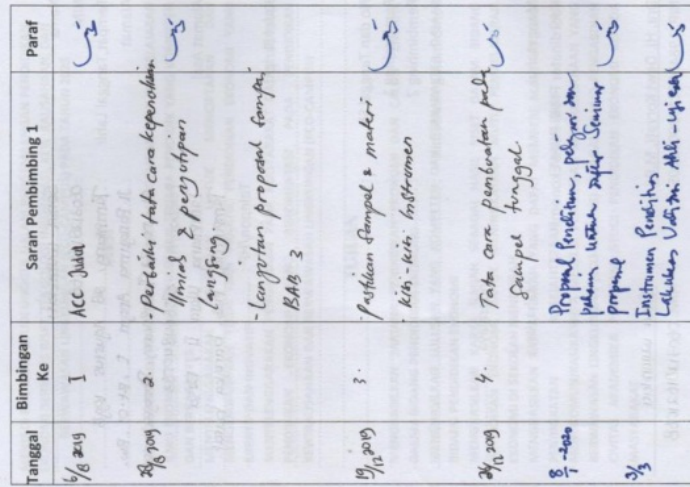 Tanggal
Bimbingan
Ke
Saran Pembimbing 1
Paraf
6/8 2019
I
ACC Judul
28/8 2019
2.
- Perbaiki tata cara kepenulisan
Ilmiah & pengutipan
langsung.
- Lanjutan proposal sampai
BAB 3
19/12 2019
3.
· Pastikan sampel & materi
· Kisi-kisi Instrumen
26/12 2019
4.
Tata cara pembuatan pada
Sampel tunggal
8/1-2020
Proposal Penelitian, pelajari dan
pahami untuk daftar Seminar
proposal
3/3
Instrumen Penelitian
Lakukan Validasi Ahli